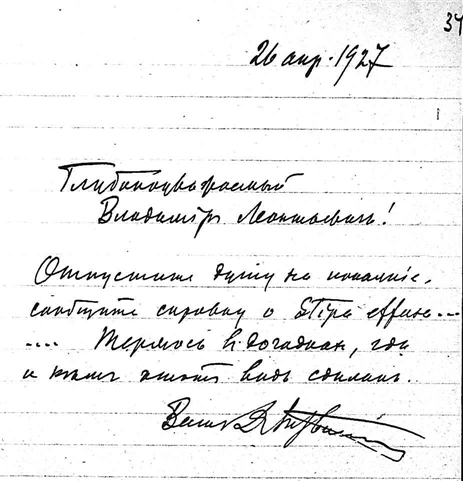 34
26 апр. 1927
Глубокоуважаемый
Владимір Леонтьевич!
Отпустите душу на покаяніе,
сообщите справку о Stipa effusa...
.... Теряюсь въ догадках, где
и кѣмъ этотъ видъ сделанъ.
Ваш